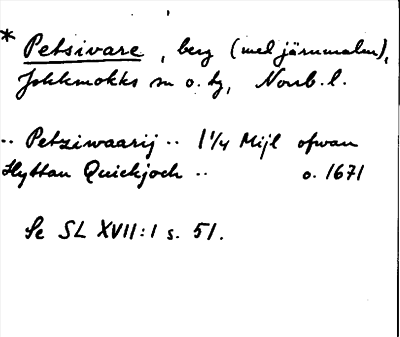 * Petsivare, berg (med järnmalm),
Jokkmokks sn o. tg, Norrb. l.
·· Petziwaarij ·· 1 1/4 Mijl ofwan
Hyttan Quickjock ·· o. 1671
Se SL XVII:1 s. 51.